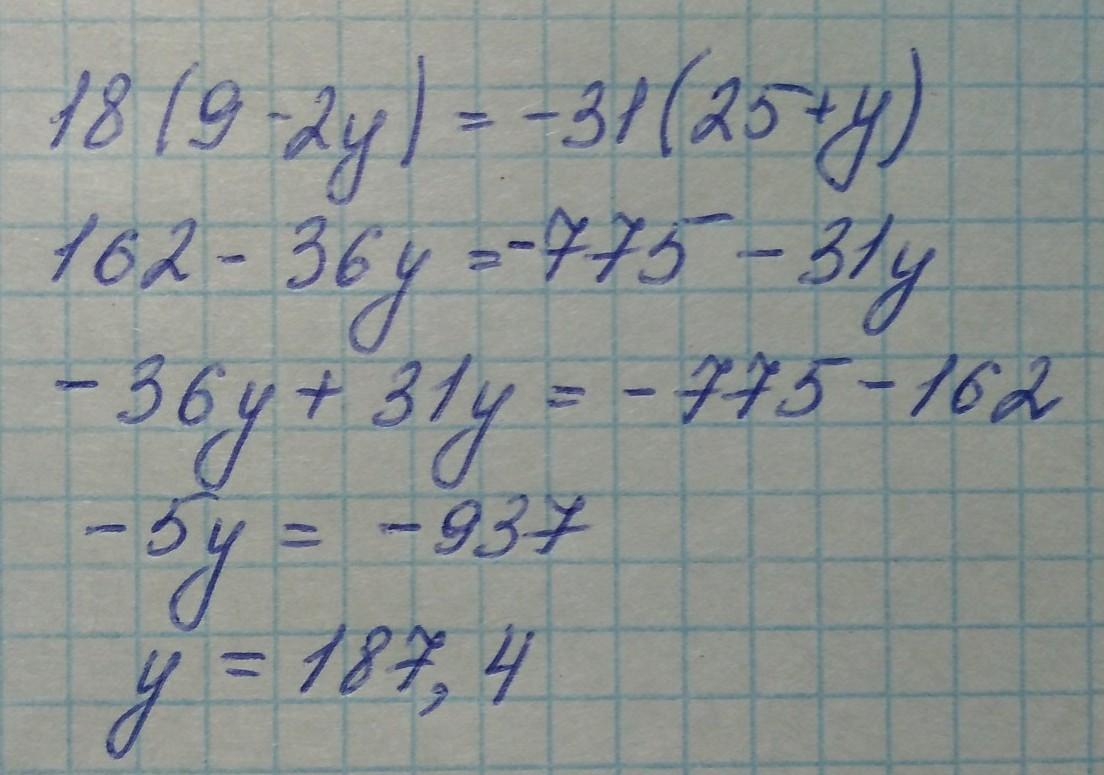 18(9-2y)=-31(25+y)
162-36y=-775-31y
-36y+31y=-775-162
-5y=-937
y=187,4